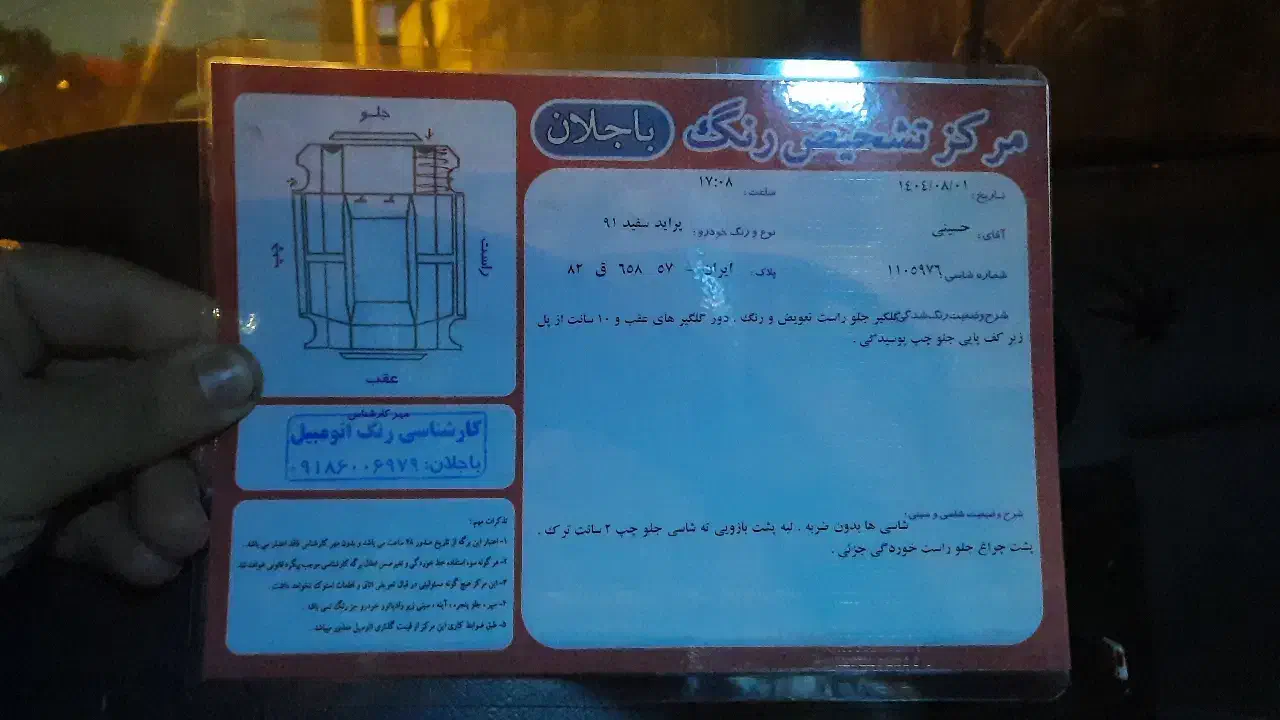 مرکز تشخیص رنگ باجلان
تاریخ: ۱۴۰۴/۰۸/۰۱ ساعت: ۱۷:۰۸
آقای: حسینی نوع و رنگ خودرو: پراید سفید ۹۱
شماره شاسی: ۱۱۰۵۹۷۶ پلاک: ایران - ۵۷ ۶۵۸ ق ۸۲
شرح وضعیت رنگ شدگی: گلگیر جلو راست تعویض و رنگ . دور گلگیر های عقب و ۱۰ سانت از پل
زیر کف پایی جلو چپ پوسیدگی .
شرح وضعیت شاسی و سینی:
شاسی ها بدون ضربه . لبه پشت بازویی ته شاسی جلو چپ ۲ سانت ترک .
پشت چراغ جلو راست خوردگی جزئی .
جلو
چپ
راست
عقب
مهر کارشناس
کارشناسی رنگ اتومبیل
باجلان: ۰۹۱۸۶۰۰۶۹۷۹
تذکرات مهم:
۱- اعتبار این برگه از تاریخ صدور ۴۸ ساعت می باشد و بدون مهر کارشناس فاقد اعتبار می باشد.
۲- هر گونه سوء استفاده خط خوردگی و تغییر متن برگه کارشناسی موجب پیگرد قانونی خواهد شد.
۳- این مرکز هیچ گونه مسئولیتی در قبال تعویض اتاق و قطعات استوک نخواهد داشت.
۴- سپر ، جلو پنجره ، آینه ، سینی زیر رادیاتور خودرو جز رنگ نمی باشد.
۵- طبق ضوابط کاری این مرکز از قیمت گذاری اتومبیل معذور میباشد.